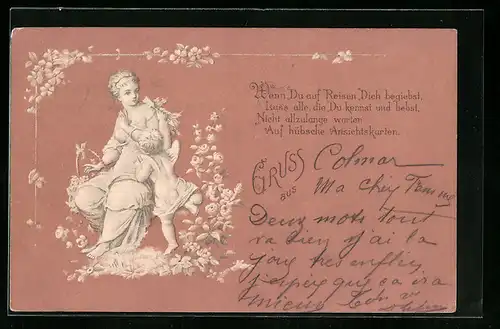 Wenn Du auf Reisen Dich begiebst,
Lasse alle, die Du kennst und liebst,
Nicht allzulange warten
Auf hübsche Ansichtskarten.
GRUSS
aus
Colmar
Ma chèr Femme
Deux mots tout
va bien j'ai la
joue tres enflée
j'espère que ca ira
mieux